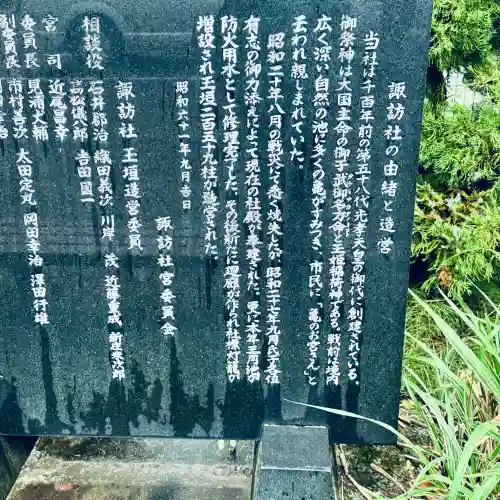 諏訪社の由緒と造営
当社は千百年前の第五十八代光孝天皇の御代に創建されている。
御祭神は大国主命の御子、武御名方命と三姫稲荷神である。戦前は境内
広く深い自然の池に多くの亀がすみつき、市民に「亀のお宮さん」と
云われ親しまれていた。
昭和二十年八月の戦災にて悉く焼失したが、昭和三十七年九月氏子各位
有志の御力添えによって現在の社殿が奉建された。更に本年三月池が
防火用水として修理完了した。その後新たに理額が作られ社標灯籠が
増設され玉垣二百五十九柱が造営された。
昭和六十一年九月吉日
諏訪社宮委員会
諏訪社 玉垣造営委員
相談役 石井郡治 織田義次 川岸 茂 近藤昌成 新座栄次郎
高松儀八郎 吉田国一
宮司 近尾昌幸
委員長 見浦大輔 太田定丸 岡田幸治 澤田行雄
副委員長 市村喜次